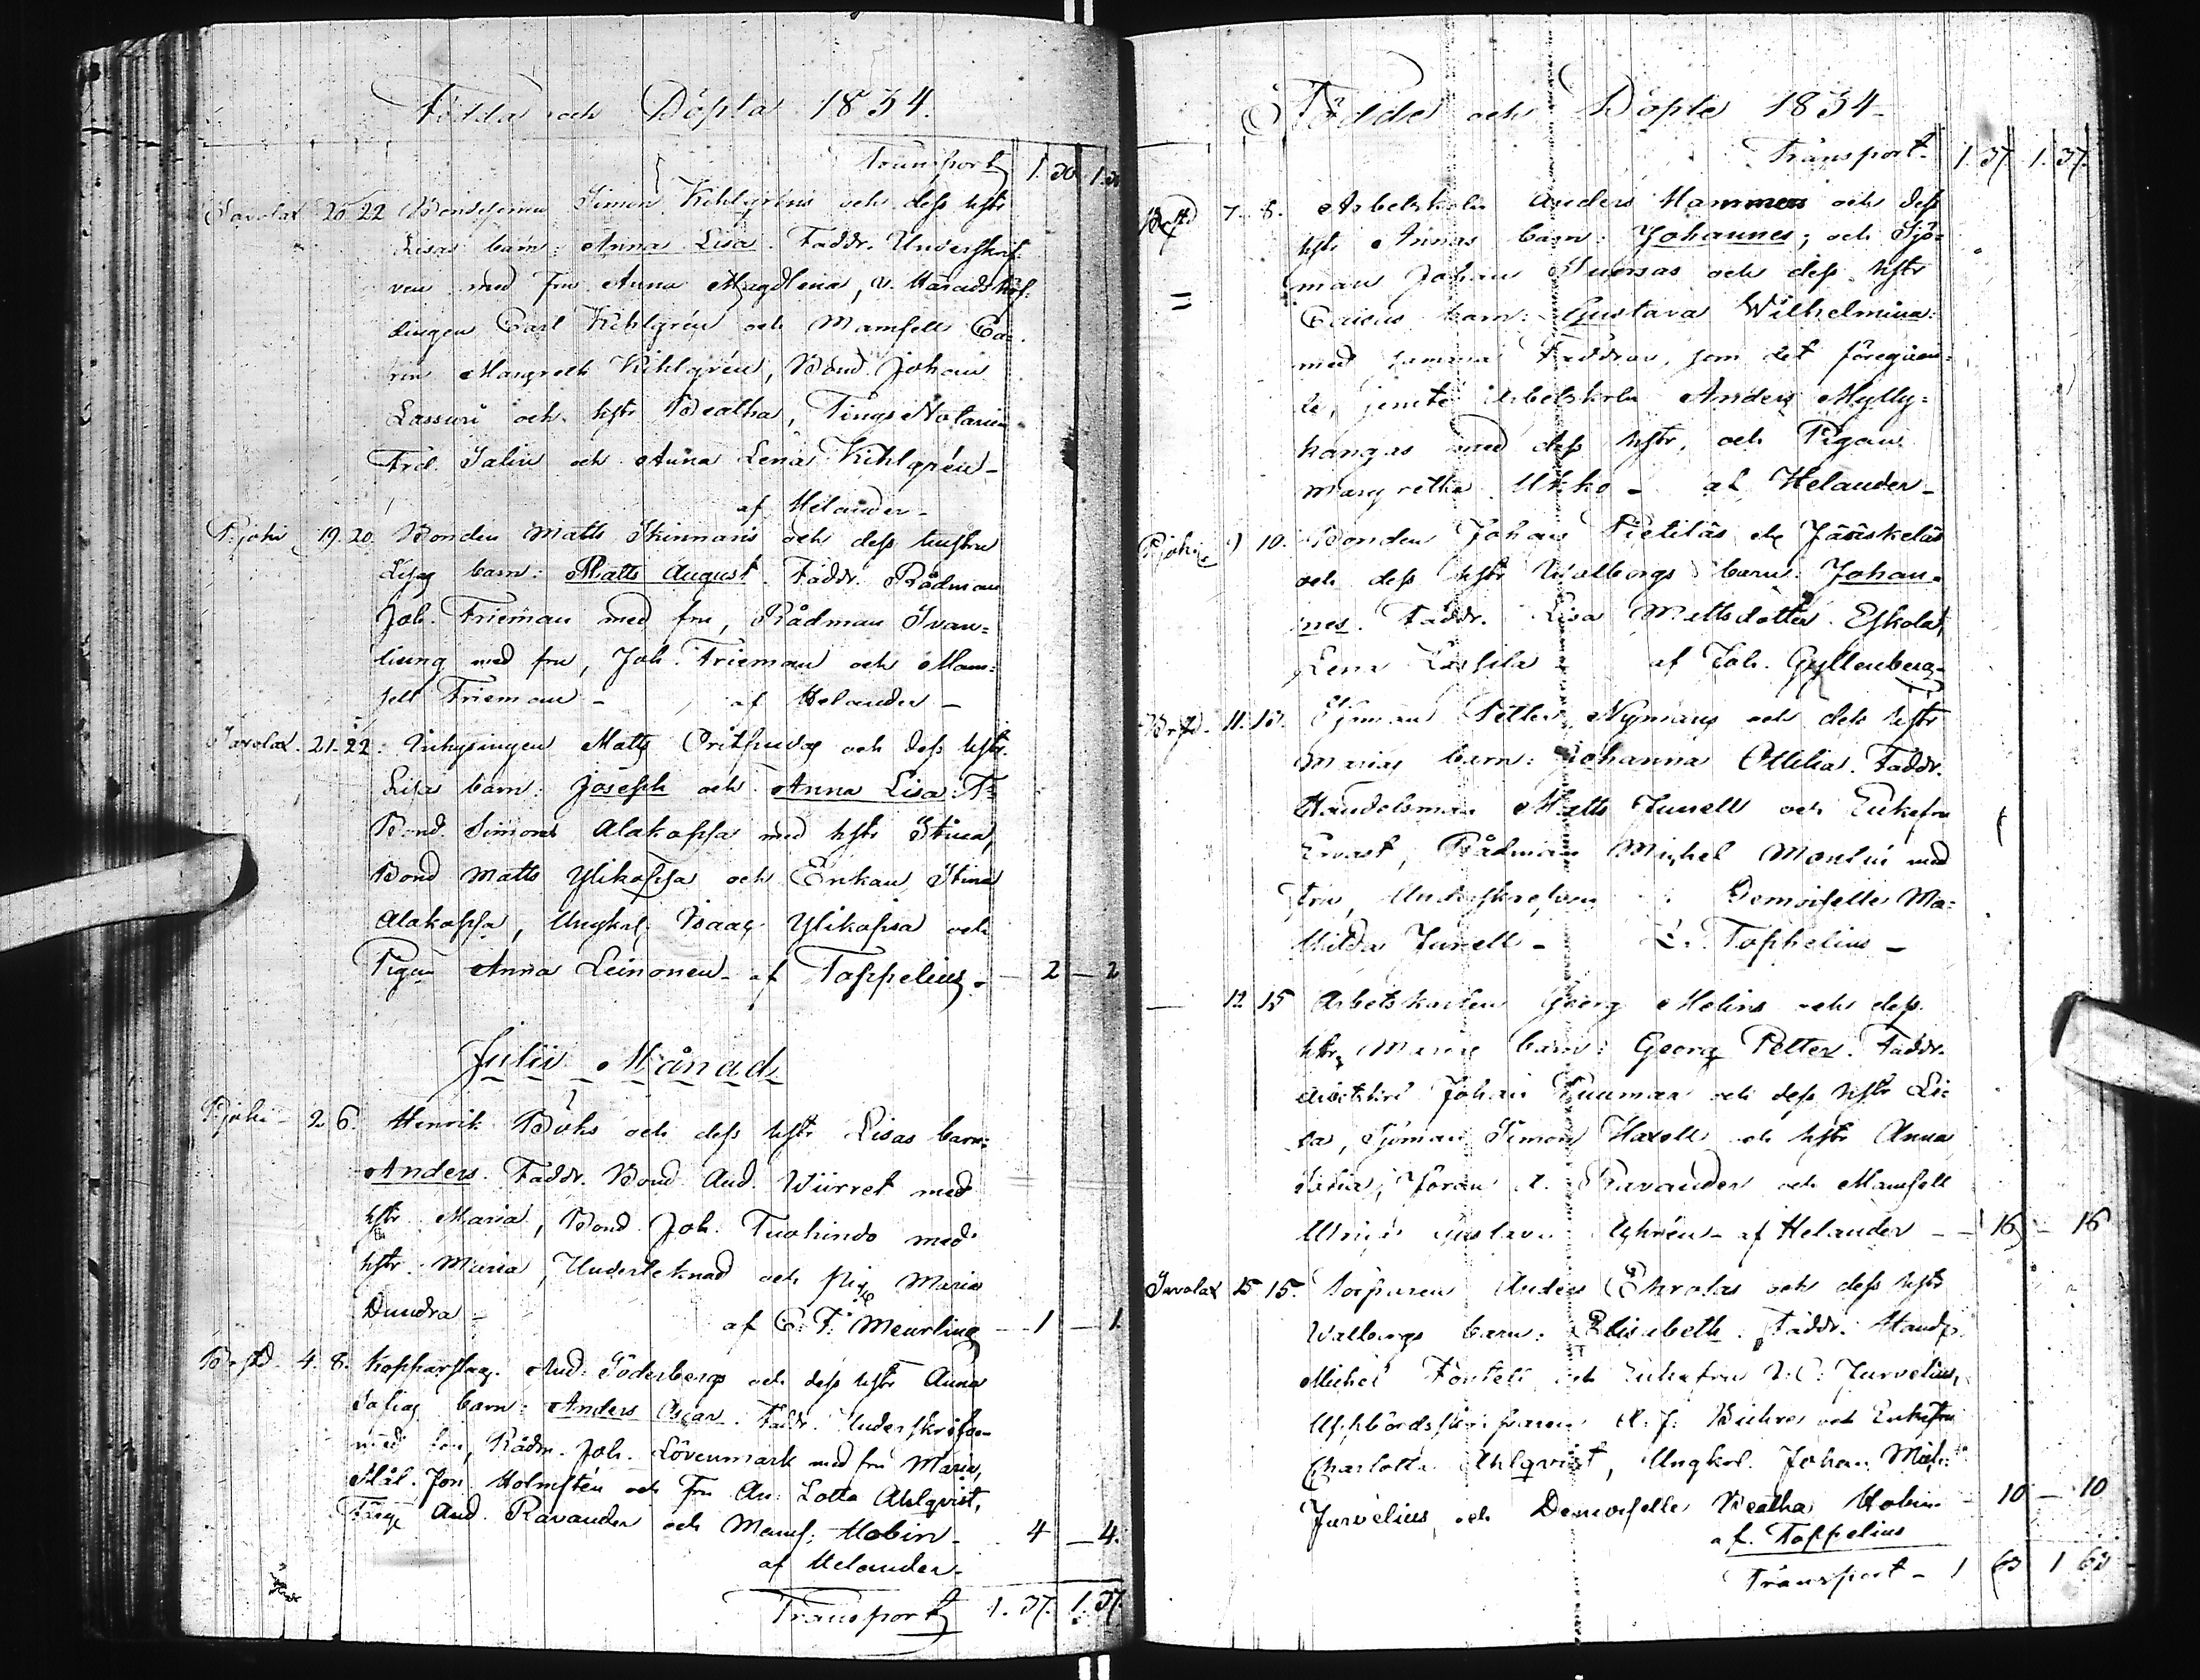 Födda och Döpta 1834.
Transport 1.30 1.30
Savolax 20 22 Bondesonen Simon Kihlgréns och dess hstr
Lisas barn: Anna Lisa. Faddr. Underskrif-
ven med fru Anna Magdlena, v. Häradshöf-
dingen Carl Kihlgrén och Mamsell Ca-
rin Margreth Kihlgrén, Bond. Johan
Lassuri och hstr Beatha, Tings Notarien
Frd. Salin och Anna Lena Kihlgrén -
af Helander -
Pjoki 19. 20. Bonden Matts Skinnaris och dess hustru
Lisas barn: Matts August. Faddr. Rådman
Joh. Frieman med fru, Rådman Svan-
ljung med fru, Joh. Frieman och Mam-
sell Frieman - af Helander -
Savolax. 21. 22. Inhysingen Matts och dess hstr
Lisas barn: Joseph och Anna Lisa. F:
Bond. Simon Alakopsa med hstr Stina,
Bond Matts Ylikopsa och Enkan Stina
Alakopsa, Ungkarl. Isaac Ylikopsa och
Pigan Anna Leinonen - af Toppelius - 2 - 2
Julii Månad
Pjoki - 2 6. Henrik Böks och dess hstr Lisas barn:
Anders. Faddr. Bond. And. Wiirret med
hstr Maria, Bond. Joh. Tuohindo med
hstr Maria, Underteknad och pig. Maria
Dundra - af C. F. Meurling - 1 - 1
B-std. 4. 8. Kopparslag. And. Söderbergs och dess hstr Anna
Sofias barn: Anders Oscar. Faddr. Underskrifven
med fru, Rådm. Joh. Lövenmark med fru Maria,
Mål. Jon Holmstén och Fru An: Lotta Ahlqvist,
And. Ravander och Mams. Hobin - 4 - 4.
af Helander -
Transport 1.37. 1.37.
Födde och Döpte 1834 -
Transport 1.37 1.37.
7. 8. Arbetskarln Anders Hammars och dess
hstr Annas barn: Johannes; och Sjö-
= man Johan och dess hstr
Caisas barn: Gustava Wilhelmina:
med samma Faddrar, som det föregåen-
de, jemte Arbetskarln Anders Mylly-
kangas med dess hstr, och Pigan
Margretha Ukko - af Helander -
Pjoki 9 10. Bonden Johan Pietiläs eller Jääskeläs
och dess hstr Walborgs barn: Johan-
nes. Faddr. Lisa Mattsdotter Eskola,
Lena Lassila - af Joh. Gyllenberg -
B-std. 11. 13. Sjöman Petter Nymans och dess hstr
Marias barn: Johanna Ottilia. Faddr.
Handelsman Matts Junell och Enkefru
Rådman Michel Montin med
Fru, Underskrefven Demoiselle Ma-
thilda Junell - L. Toppelius -
- 12 15 Arbetskarlen Georg Melins och dess
hstr Marias barn: Georg Petter. Faddr.
Arbetskarl Johan Tuuman och dess hstr Li-
sa, Sjöman Simon Haxell och hstr Anna
Göran A. Ravander och Mamsell
Maria Gustava Uhrén - af Helander - - 16 - 16
Savolax 15 15. Torparen Anders Ekrolas och dess hstr
Walborgs barn: Elisabeth. Faddr. Handp.
Michel Fontell och Enkefru Jurvelius,
Uppbördsskrifvaren A. J. Buhre och Enkefru
Charlotta Ahlqvist, Ungkarl. Johan Mich:
Jurvelius, och Demoiselle Beatha Hobin - 10 - 10
af Toppelius
Transport - 1 63 1 63